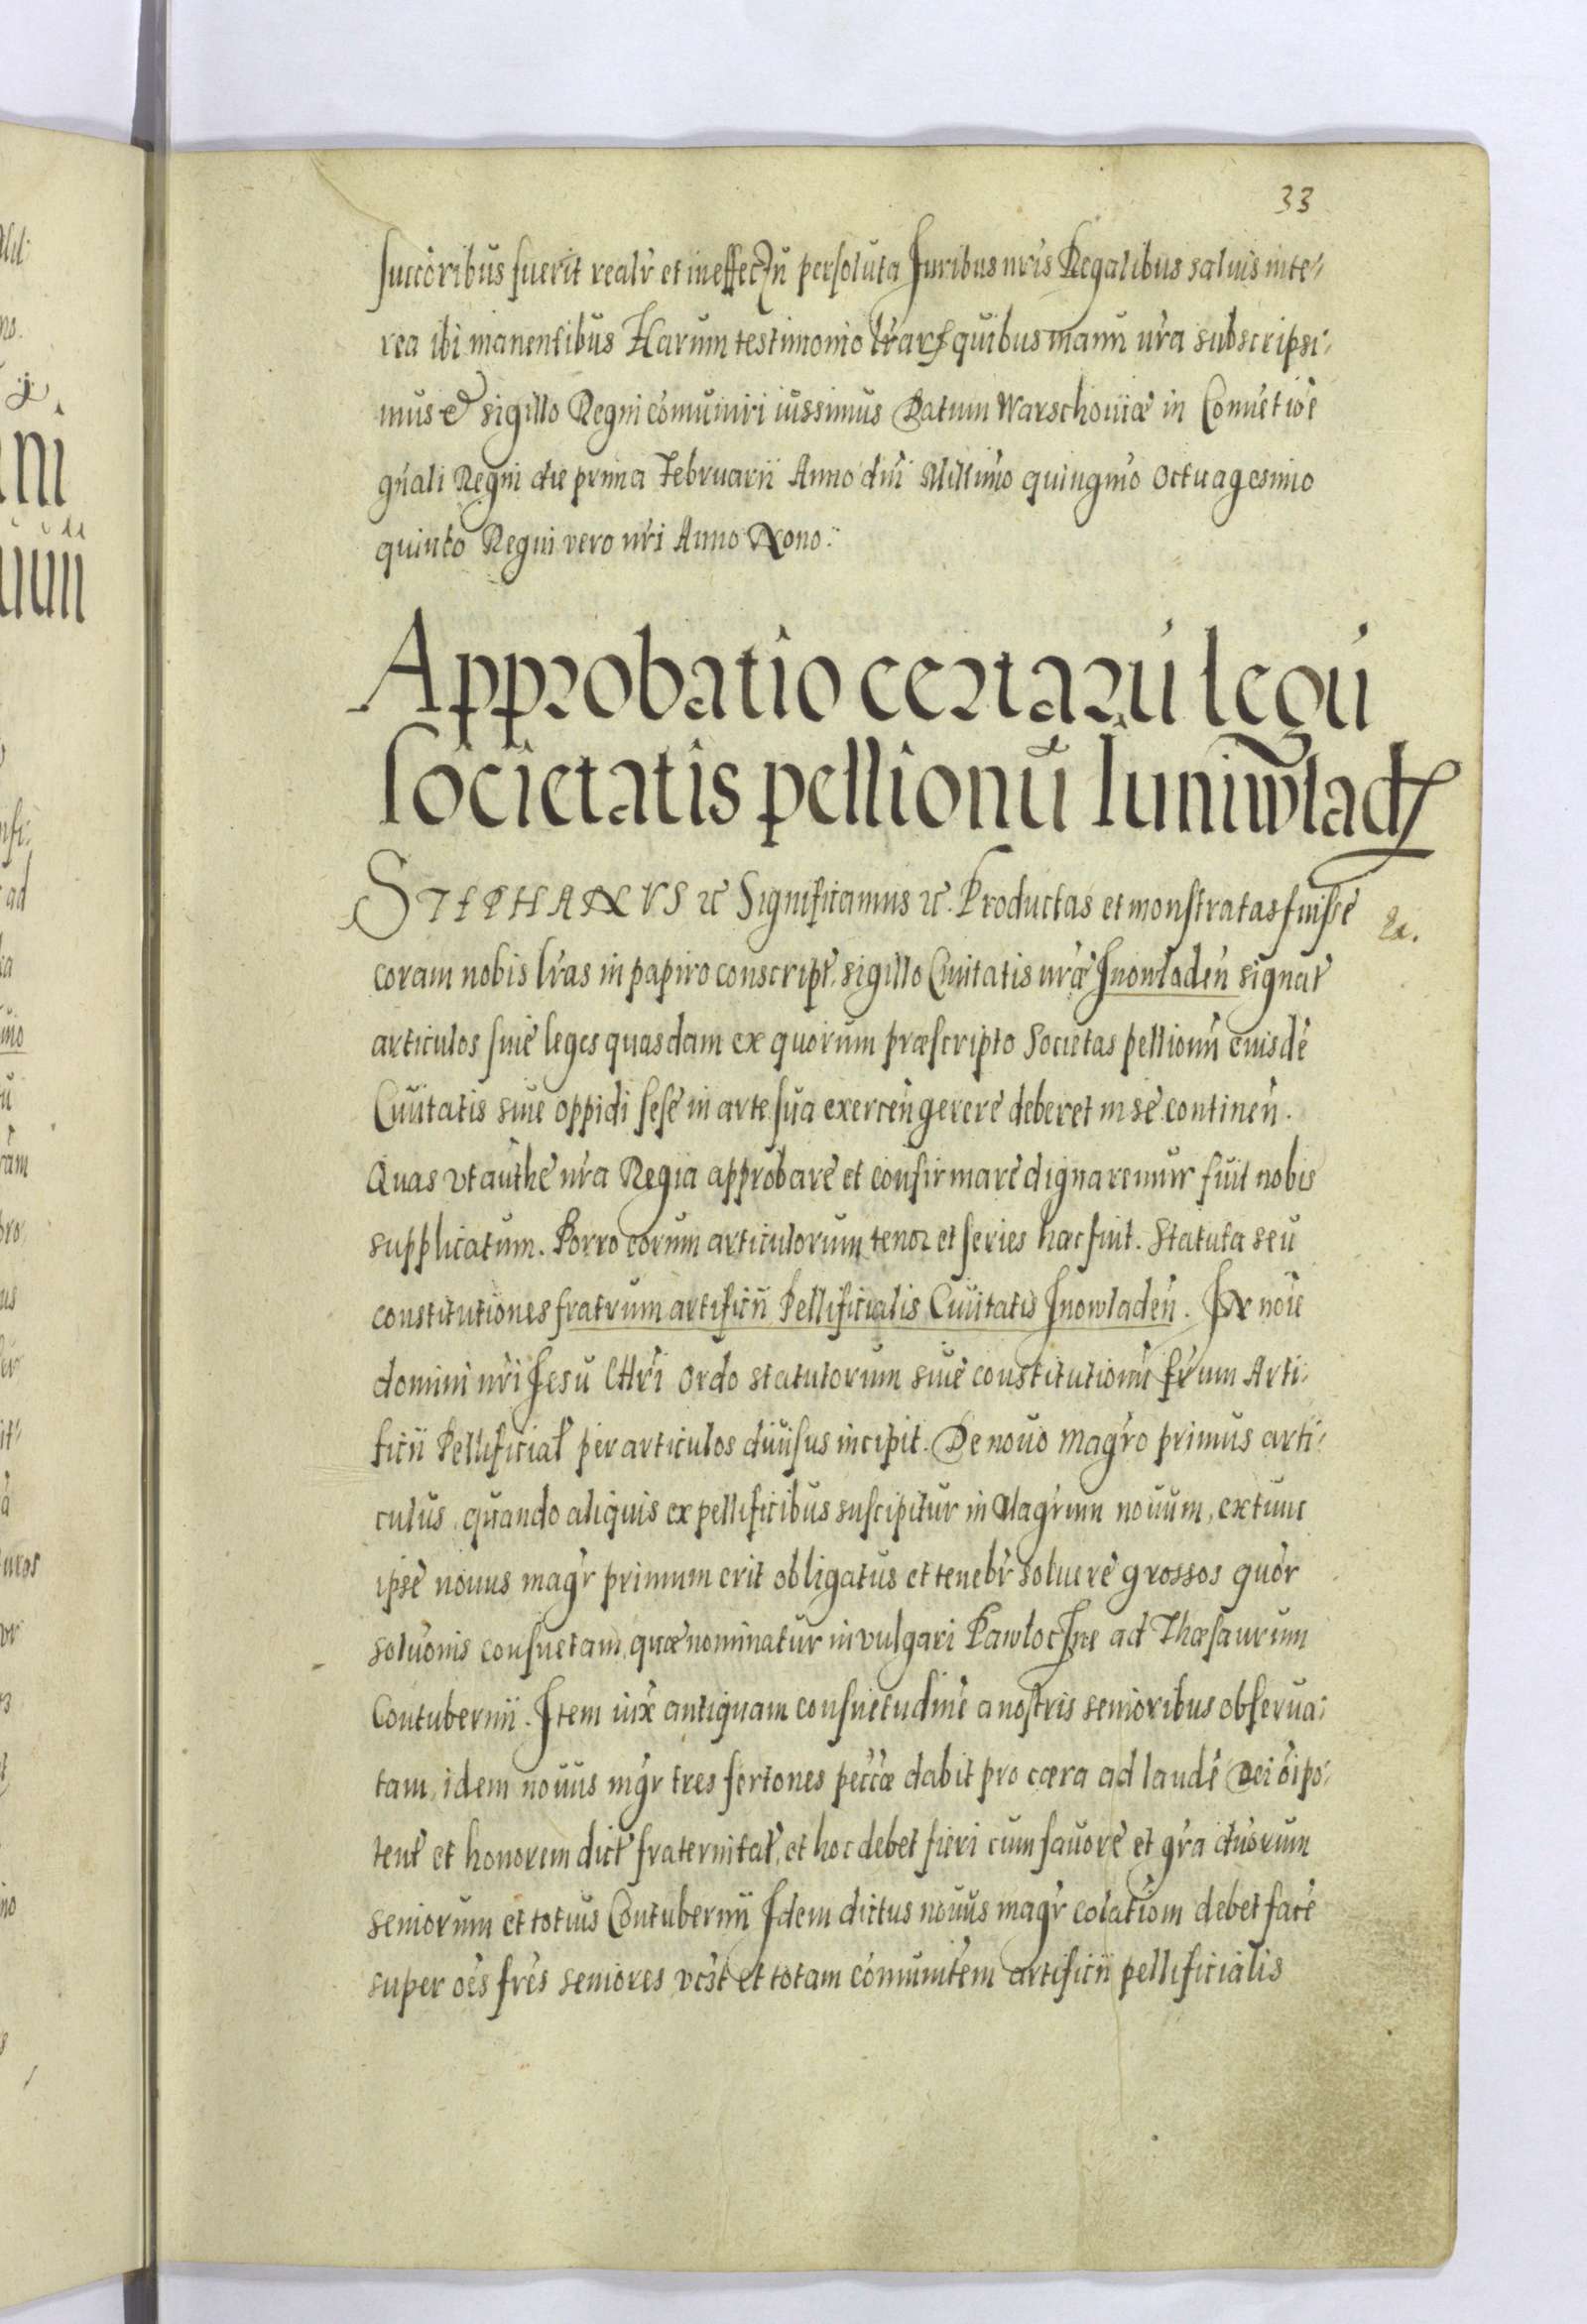 33
succoribus fuerit realr et in effectu persoluta Juribus nris Regalibus saluis inte-
rea ibi manentibus Harum testimonio lrarum quibus manu nra subscripsi-
mus et sigillo Regni comuniri iussimus Datum Warschouiæ in Conuetioe
gnali Regni die prima Februarii Anno dni Millimo quingmo octuagesimo
quinto Regni vero nri Anno Nono.
Approbatio certarú legú
societatis pellionũ Iuniwladń
STEPHANVS etc Significamus etc. Productas et monstratas fuisse
coram nobis lras in papiro conscript. sigillo Ciuitatis nræ Jnowladen signat
articulos siue leges quasdam ex quorum præscripto Societas pellionu eiusde
Ciuitatis siue oppidi sese in arte sua exercen gerere deberet in se continen.
Quas vt authe nra Regia approbare et confirmare dignaremur fuit nobis
supplicatum. Porro eorum articulorum tenor et series hæc fuit. Statuta seu
constitutiones fratrum artificii Pellificialis Ciuitatis Jnowladen. IN noie
domini nri Jesu Chri ordo statutorum siue constitutionu frum Arti-
ficii Pellificial per articulos diuisus incipit. De nouo magro primus arti-
culus, quando aliquis ex pellificibus suscipitur in Magrum nouum, extunc
ipse nouus magr primum erit obligatus et tenebr soluere grossos quor
soluonis consuetam, quæ nominatur in vulgari ad Thæsaurum
Contubernii. Item iux antiquam consuetudine a nostris senioribus obserua-
tam, idem nouus mgr tres fertones peccæ dabit pro cæra ad laude Dei oipo-
tent et honorem dict fraternitat, et hoc debet fieri cum fauore et gra duorum
seniorum et totius Contubernii Idem dictus nouus magr colatiom debet face
super oes fres seniores vcst et totam comunitem artificii pellificialis